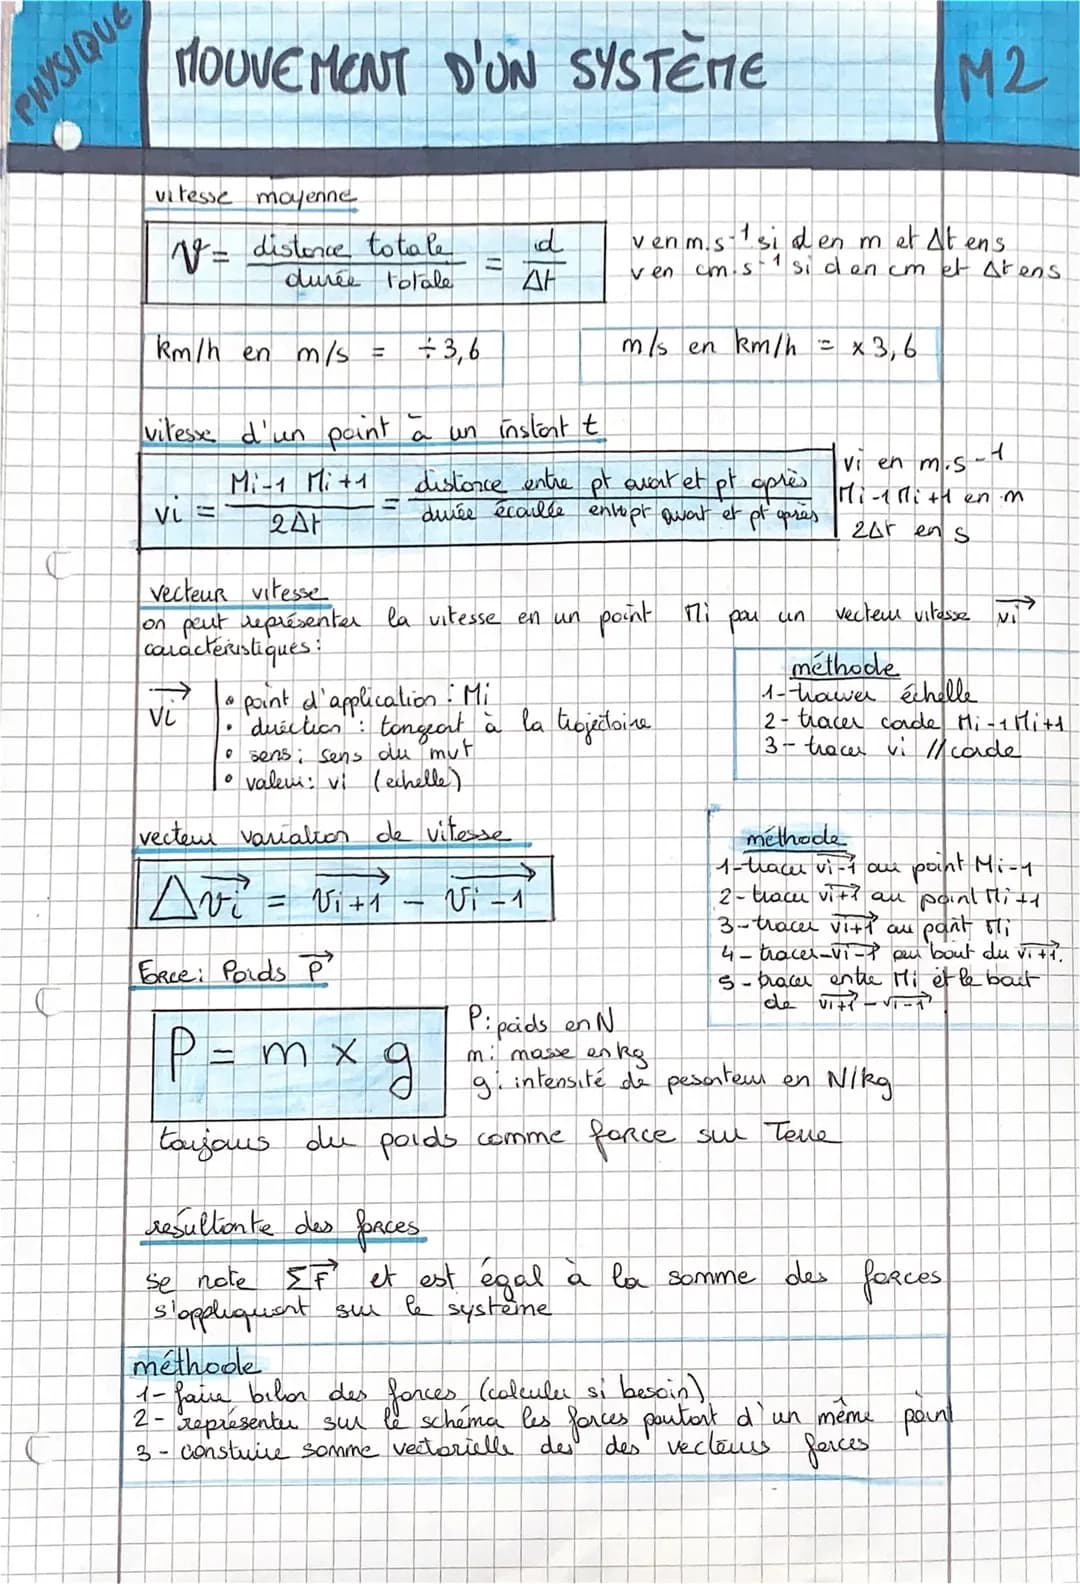 PHYSIQUE
MOUVEMENT D'UN SYSTÈME
M2
vitesse moyenne
V = distance totale / durée totale = d / Δt
v en m.s⁻¹ si d en m et Δt en s
v en cm.s⁻¹ si d en cm et Δt en s
km/h en m/s = ÷3,6
m/s en km/h = x 3,6
vitesse d'un point à un instant t
vi = Mi-1 Mi+1 / 2Δt = distance entre pt avant et pt après / durée écoulée entre pt avant et pt après
vi en m.s-1
Mi-1 Mi+1 en m
2Δt en s
vecteur vitesse
on peut représenter la vitesse en un point Mi par un vecteur vitesse vi→
caractéristiques :
vi→
• point d'application : Mi
• direction : tangeant à la trajectoire
• sens : sens du mvt
• valeur : vi (echelle)
méthode
1- trouver échelle
2- tracer corde Mi-1 Mi+1
3- tracer vi // corde
vecteur variation de vitesse
Δvi→ = vi+1→ - vi-1→
méthode
1- tracer vi-1→ au point Mi-1
2- tracer vi+1→ au point Mi+1
3- tracer vi+1→ au point Mi
4- tracer -vi-1→ au bout du vi+1→.
5- tracer entre Mi et le bout
de vi+1→ - vi-1→
Force : Poids P→
P = m x g
P : poids en N
m : masse en kg
g : intensité de pesanteur en N/kg
toujours du poids comme force sur Terre
resultante des forces
se note ΣF→ et est égal à la somme des forces
s'appliquant sur le système
méthode
1- faire bilan des forces (calculer si besoin)
2- représenter sur le schéma les forces partant d'un même point
3- construire somme vectorielle des des vecteurs forces